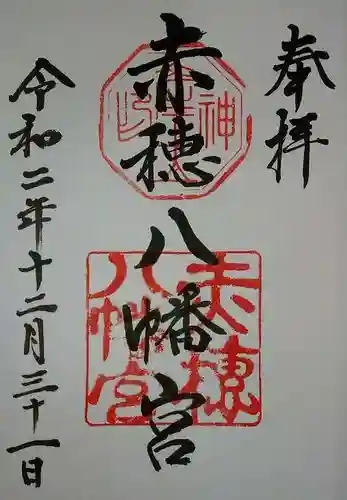 奉拝
赤穂八幡宮
令和二年十二月三十一日
赤穂
八幡宮